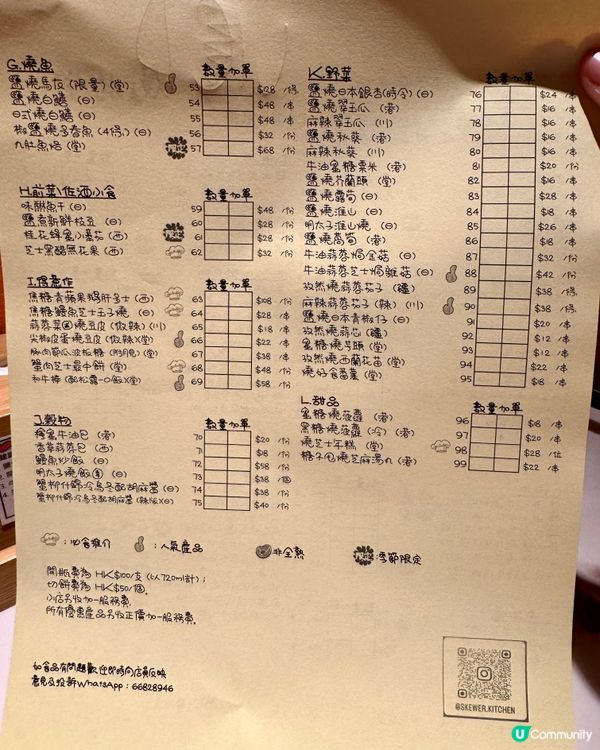 G.燒魚 數量 加單
鹽燒馬友(限量)(堂) 53 $128 /條
鹽燒白鱔 (日) 54 $48 /本
日式燒白鱔 (日) 55 $48 /本
椒鹽燒多春魚(4條)(日) 56 $32 /份
九肚魚焙 (堂) 57 $68 /份
H.前菜/佐酒小食 數量 加單
味醂魚干 (日) 59 $48 /份
鹽煮新鮮枝豆 (日) 60 $28 /份
桂花蜂蜜小番茄 (西) 61 $28 /份
芝士黑醋無花果 (西) 62 $32 /份
I.得意作 數量 加單
焦糖青蘋果鵝肝多士 (西) 63 $108 /份
焦糖鰻魚芝士玉子燒 (日) 64 $28 /本
蒜蓉菜圃燒豆皮 (微辣)(川) 65 $18 /本
尖椒皮蛋燒豆皮 (微辣)(堂) 66 $22 /本
豚肉節瓜波板糖 (堂) 67 $38 /本
蟹肉芝士最中餅 (堂) 68 $48 /份
和牛棒 (堂) 69 $58 /份
J.穀物 數量 加單
檸蜜牛油包 (港) 70 $20 /份
香草蒜蓉包 (西) 71 $20 /份
鰻魚炒飯 (日) 72 $58 /份
明太子燒飯團 (日) 73 $38 /個
蟹柳什錦冷烏冬配胡麻醬 (日) 74 $38 /份
蟹柳什錦冷烏冬配胡麻醬 (辣版)(日) 75 $40 /份
K.野菜 數量 加單
鹽燒日本銀杏(時令)(日) 76 $24 /本
鹽燒翠玉瓜 (港) 77 $16 /本
麻辣翠玉瓜 (川) 78 $16 /本
鹽燒秋葵 (港) 79 $16 /本
麻辣秋葵 (川) 80 $16 /本
牛油蜜糖粟米 (港) 81 $20 /份
鹽燒芥蘭頭 (堂) 82 $16 /本
鹽燒露筍 (日) 83 $28 /本
鹽燒淮山 (日) 84 $18 /本
明太子淮山燒 (日) 85 $26 /本
鹽燒萵筍 (港) 86 $18 /本
牛油蒜蓉焗金菇 (日) 87 $32 /份
牛油蒜蓉芝士焗雜菇 (日) 88 $42 /份
孜然燒蒜蓉茄子 (疆) 89 $38 /條
麻辣蒜蓉茄子 (辣) (川) 90 $38 /條
鹽燒日本青椒仔 (日) 91 $20 /本
孜然燒蒜芯 (疆) 92 $12 /本
蜜糖燒芋頭 (堂) 93 $12 /本
孜然燒西蘭花苗 (堂) 94 $20 /本
燒好食番薯 (堂) 95 $18 /本
L.甜品 數量 加單
蜜糖燒菠蘿 (港) 96 $18 /本
黑糖燒菠蘿 (冷) (港) 97 $20 /本
燒芝士年糕 (堂) 98 $28 /位
糖不甩燒芝麻湯丸 (港) 99 $22 /本
:必食推介 :人氣產品 非全熟 :季節限定
開瓶費為 HK$100/支 (以720ml計) ;
切餅費為 HK$50/個.
小店另收加一服務費.
所有優惠產品另收正價加一服務費.
如食品有問題歡迎即時向店員反映
意見及投訴WhatsApp : 66828946
@SKEWER.KITCHEN
U Community